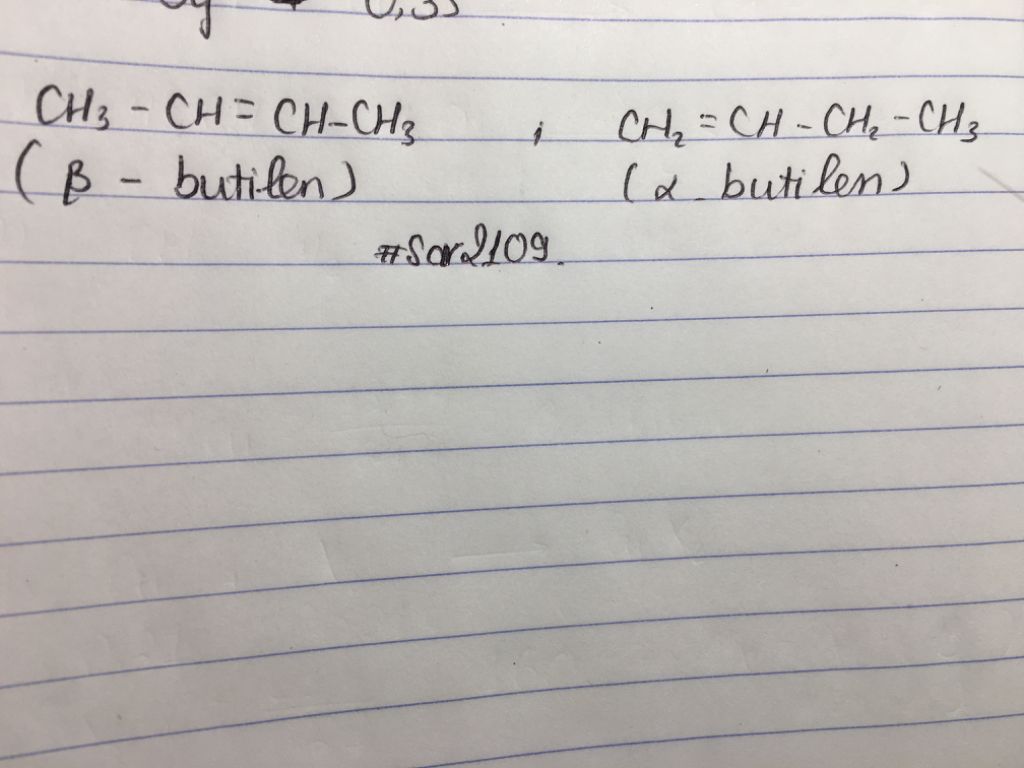 CH₃ - CH = CH-CH₃ ; CH₂ = CH - CH₂ - CH₃
(β - butilen) (α - butilen)
#Sar2109.